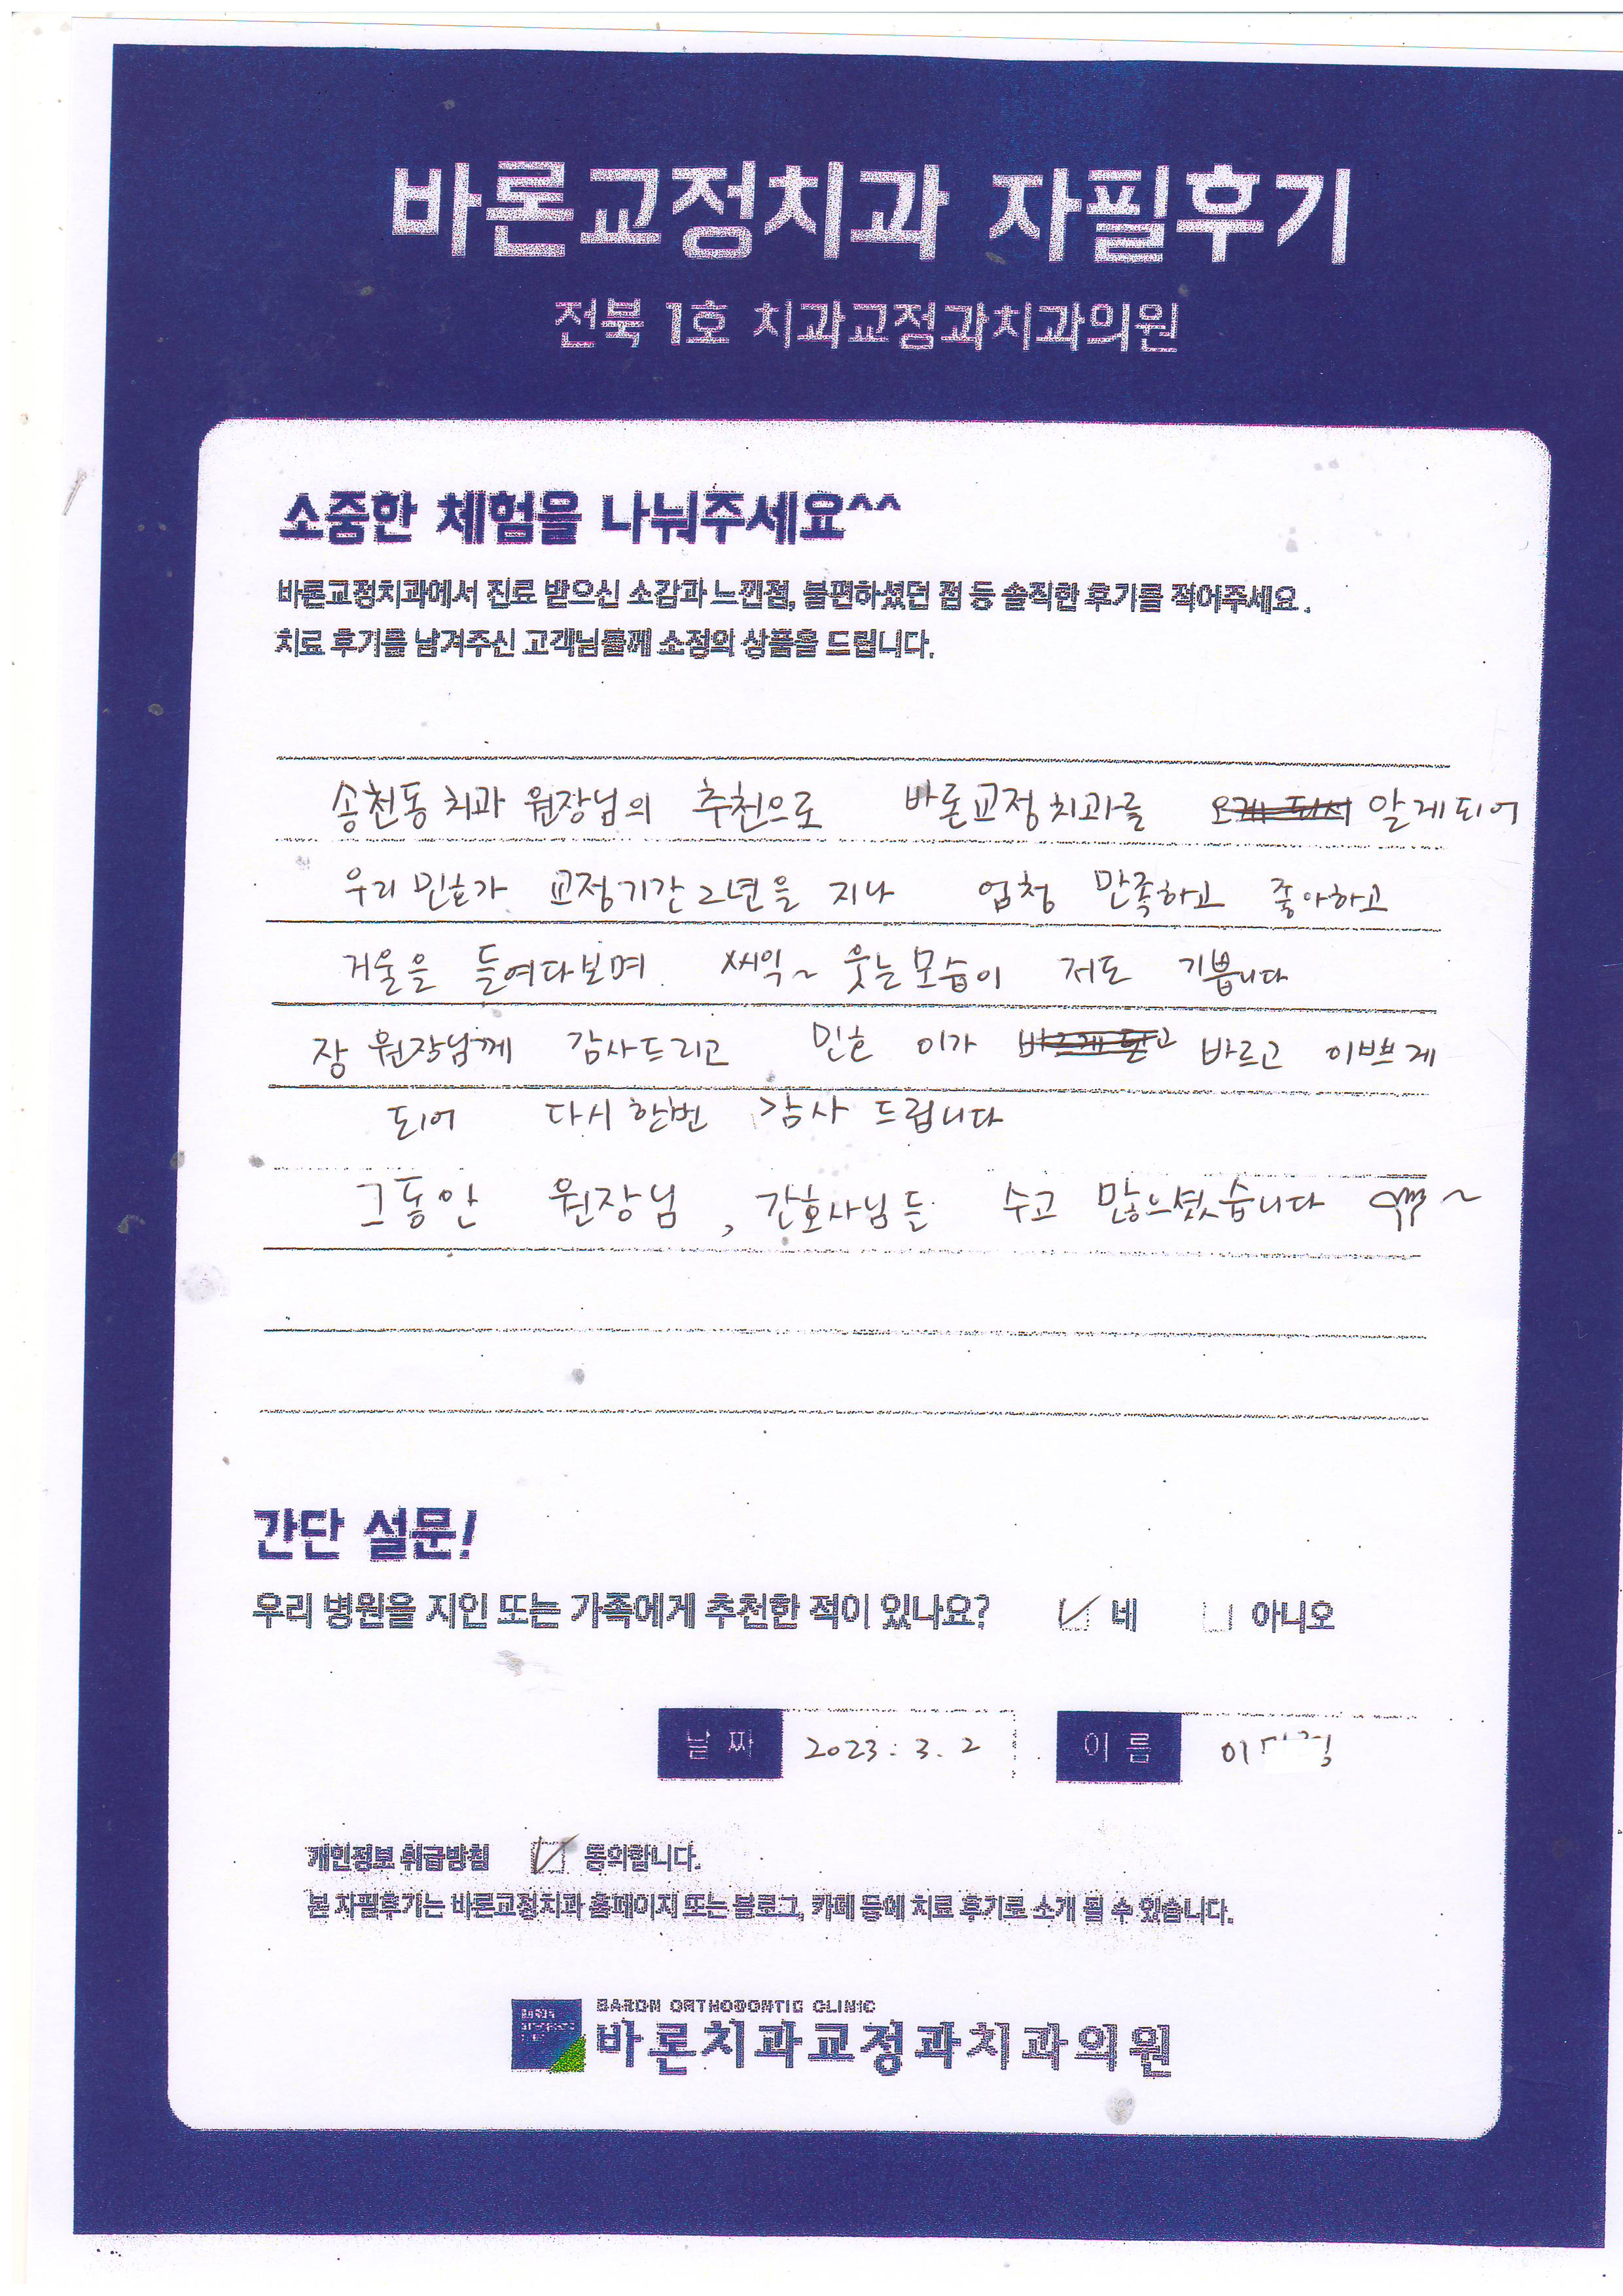 바론교정치과 자필후기
전북 1호 치과교정과치과의원
소중한 체험을 나눠주세요^^
바론교정치과에서 진료 받으신 소감과 느낀점, 불편하셨던 점 등 솔직한 후기를 적어주세요.
치료 후기를 남겨주신 고객님들께 소정의 상품을 드립니다.
송천동 치과 원장님의 추천으로 바론교정치과를 알게되어
우리 민호가 교정기간 2년을 지나 엄청 만족하고 좋아하고
거울을 들여다보며 씨익~ 웃는모습이 저도 기쁩니다
장 원장님께 감사드리고 민호 이가 바르고 이쁘게
되어 다시한번 감사 드립니다
그동안 원장님, 간호사님들 수고 많으셨습니다 ~
간단 설문!
우리 병원을 지인 또는 가족에게 추천한 적이 있나요? 네 아니오
날짜 2023. 3. 2 이름 이
개인정보 취급방침 동의합니다.
본 자필후기는 바론교정치과 홈페이지 또는 블로그, 카페 등에 치료 후기로 소개 될 수 있습니다.
BARON ORTHODONTIC CLINIC
바론치과교정과치과의원